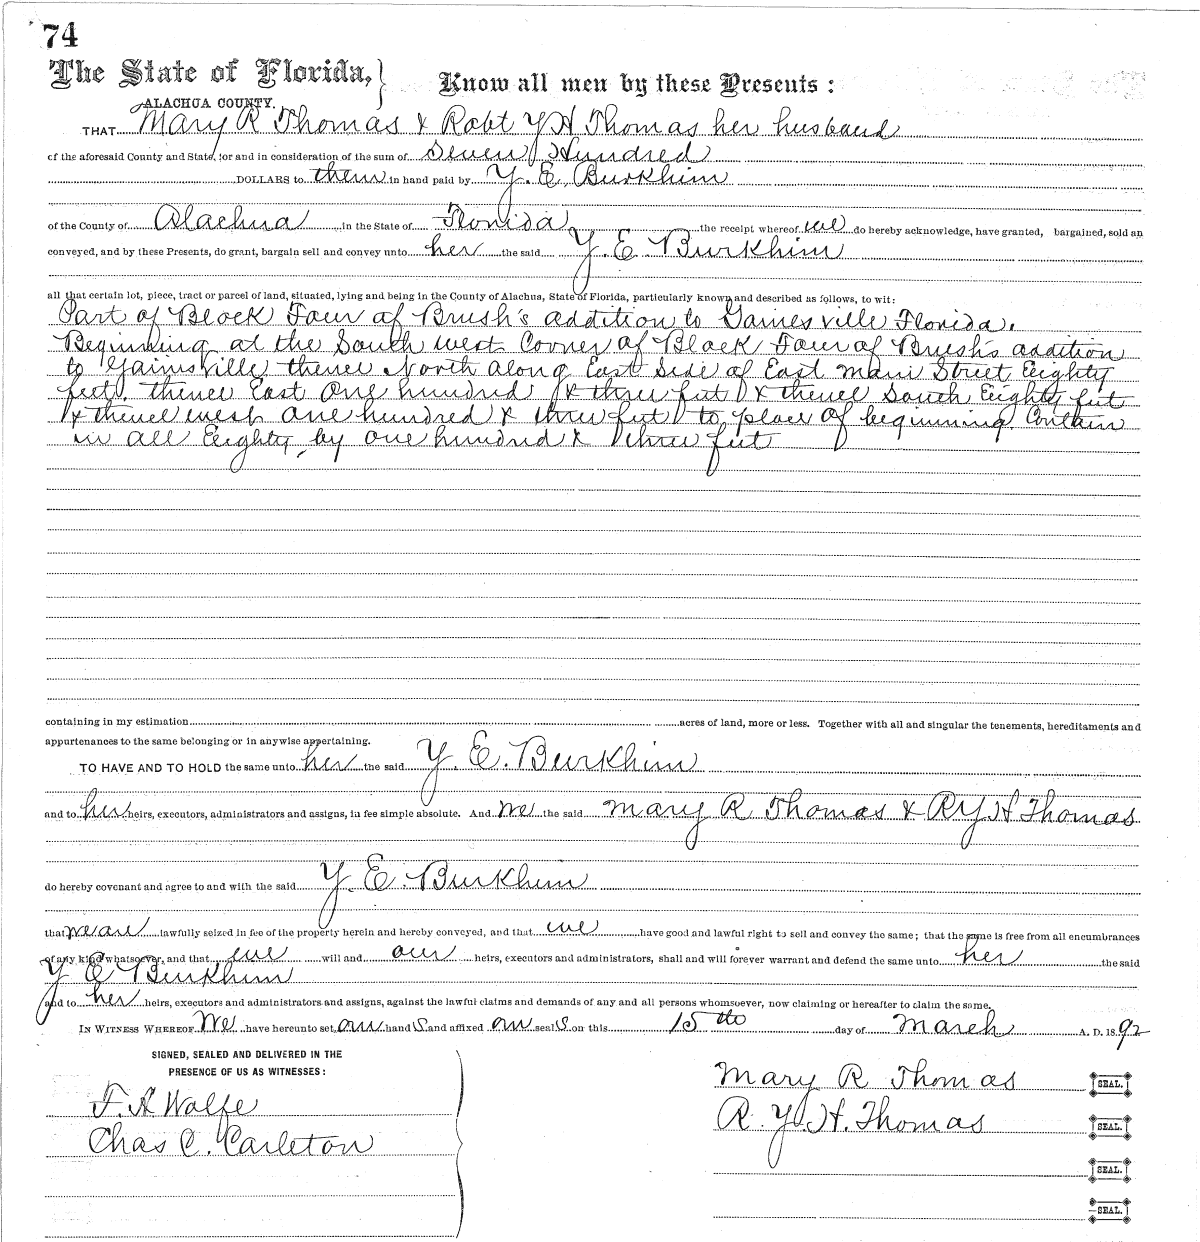 74
The State of Florida, } Know all men by these Presents :
ALACHUA COUNTY.
THAT Mary R Thomas & Robt Y H Thomas her husband
of the aforesaid County and State, for and in consideration of the sum of Seven Hundred
DOLLARS to them in hand paid by Y. E. Burkhim
of the County of Alachua in the State of Florida the receipt whereof we do hereby acknowledge, have granted, bargained, sold an
conveyed, and by these Presents, do grant, bargain sell and convey unto her the said Y. E. Burkhim
all that certain lot, piece, tract or parcel of land, situated, lying and being in the County of Alachua, State of Florida, particularly known and described as follows, to wit:
Part of Block Four of Brush's addition to Gainesville Florida.
Beginning at the South west Corner of Block Four of Brush's addition
to Gainisville thence North along East Side of East Main Street Eeighty
feet. thence East One hundred & three feet & thence South Eeighty feet
& thence west one hundred & three feet to place of beginning Contain
in all Eeighty by one hundred & three feet
containing in my estimation acres of land, more or less. Together with all and singular the tenements, hereditaments and
appurtenances to the same belonging or in anywise appertaining.
TO HAVE AND TO HOLD the same unto her the said Y. E. Burkhim
and to her heirs, executors, administrators and assigns, in fee simple absolute. And we the said Mary R Thomas & R Y H Thomas
do hereby covenant and agree to and with the said Y. E. Burkhim
that we are lawfully seized in fee of the property herein and hereby conveyed, and that we have good and lawful right to sell and convey the same; that the same is free from all encumbrances
of any kind whatsoever, and that we will and our heirs, executors and administrators, shall and will forever warrant and defend the same unto her the said
Y E Burkhim
and to her heirs, executors and administrators and assigns, against the lawful claims and demands of any and all persons whomsoever, now claiming or hereafter to claim the same.
IN WITNESS WHEREOF We have hereunto set our hand s and affixed our seal s on this 15th day of March A. D. 1892
SIGNED, SEALED AND DELIVERED IN THE
PRESENCE OF US AS WITNESSES :
Mary R Thomas SEAL.
F. A Wolfe
R. Y. H. Thomas SEAL.
Chas C. Carleton
SEAL.
SEAL.